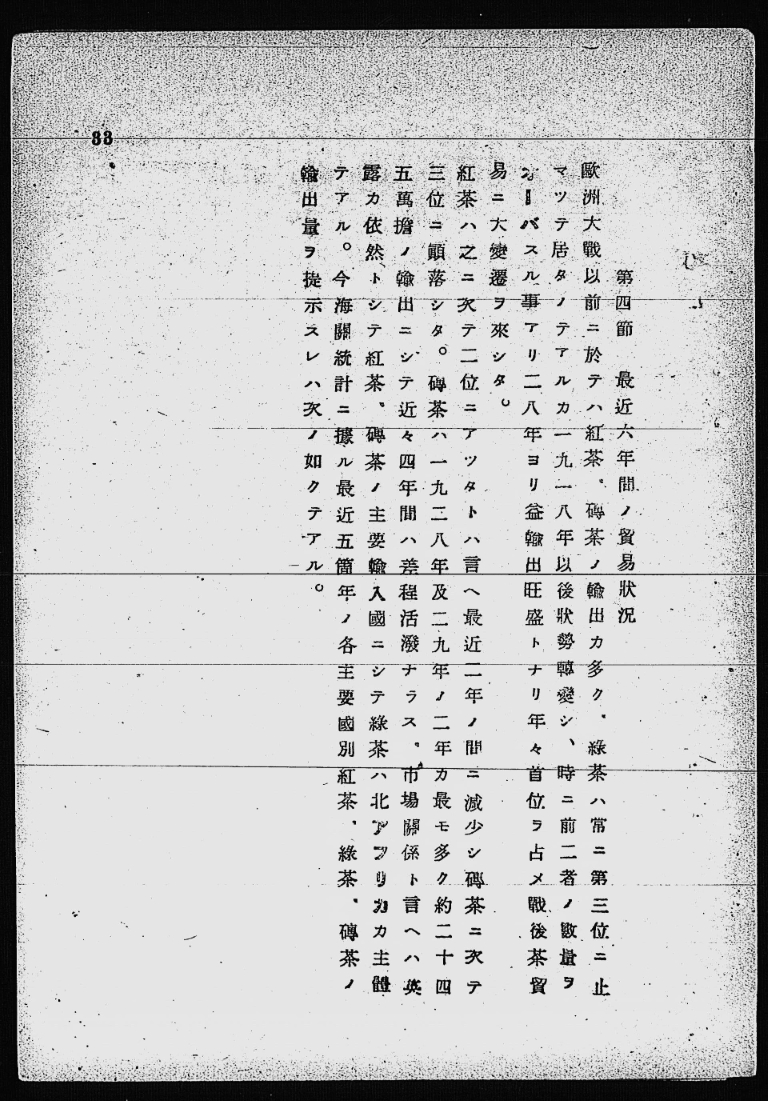 88
第四節　最近六年間ノ貿易狀況
歐洲大戰以前ニ於テハ紅茶、磚茶ノ輸出カ多ク、綠茶ハ常ニ第三位ニ止
マツテ居タノテアルカ一九一八年以後狀勢轉變シ、時ニ前二者ノ數量ヲ
オーバスル事アリ二八年ヨリ益輸出旺盛トナリ年々首位ヲ占メ戰後茶貿
易ニ大變遷ヲ來シタ。
紅茶ハ之ニ次テ二位ニアツタトハ言ヘ最近二年ノ間ニ減少シ磚茶ニ次テ
三位ニ顚落シタ。磚茶ハ一九二八年及二九年ノ二年カ最モ多ク約二十四
五萬擔ノ輸出ニシテ近々四年間ハ差程活潑ナラス、市場關係ト言ヘハ英
露カ依然トシテ紅茶、磚茶ノ主要輸入國ニシテ綠茶ハ北アフリカカ主體
テアル。今海關統計ニ據ル最近五箇年ノ各主要國別紅茶、綠茶、磚茶ノ
輸出量ヲ提示スレハ次ノ如クテアル。